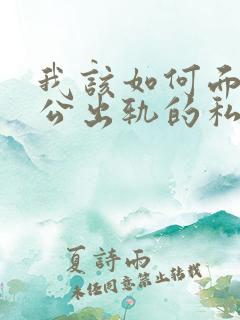 我该如何面
公出轨的私
夏詩雨
未经同意禁止转载